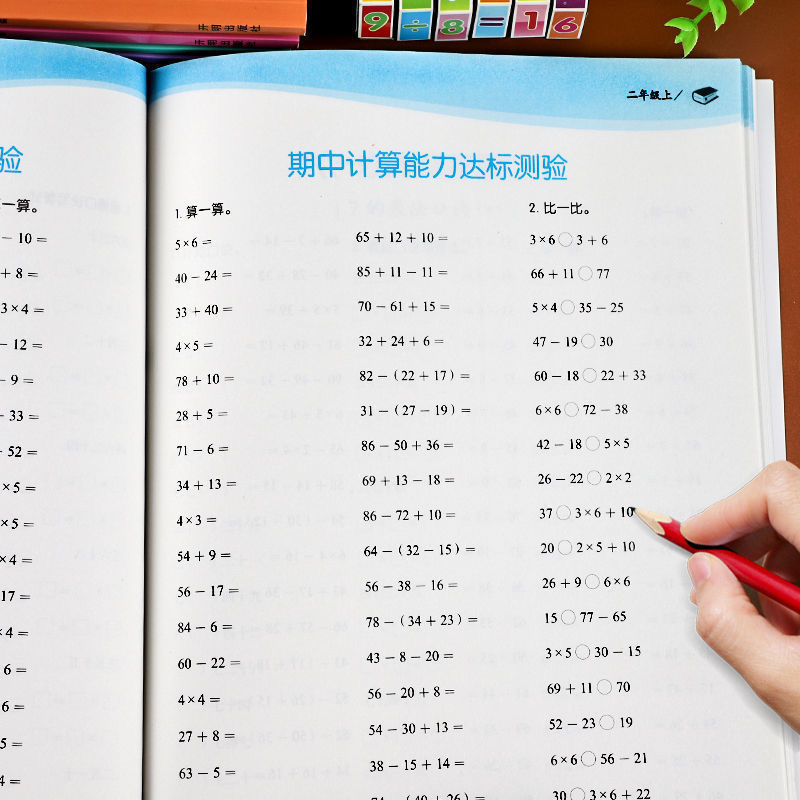 9 ÷ 8 = 16
二年级上/
验
期中计算能力达标测验
算一算。
- 10 =
+ 8 =
3×4 =
- 12 =
- 9 =
- 33 =
+ 52 =
×5 =
×5 =
×4 =
17 =
×4 =
6 =
6 =
5 =
4 =
1. 算一算。
5×6 =
40 - 24 =
33 + 40 =
4×5 =
78 + 10 =
28 + 5 =
71 - 6 =
34 + 13 =
4×3 =
54 + 9 =
56 - 17 =
84 - 6 =
60 - 22 =
4×4 =
27 + 8 =
63 - 5 =
65 + 12 + 10 =
85 + 11 - 11 =
70 - 61 + 15 =
32 + 24 + 6 =
82 - (22 + 17) =
31 - (27 - 19) =
86 - 50 + 36 =
69 + 13 - 18 =
86 - 72 + 10 =
64 - (32 - 15) =
56 - 38 - 16 =
78 - (34 + 23) =
43 - 8 - 20 =
56 - 20 + 8 =
54 - 30 + 13 =
38 - 15 + 14 =
2. 比一比。
3×6○3 + 6
66 + 11○77
5×4○35 - 25
47 - 19○30
60 - 18○22 + 33
6×6○72 - 38
42 - 18○5×5
26 - 22○2×2
37○3×6 + 10
20○2×5 + 10
26 + 9○6×6
15○77 - 65
3×5○30 - 15
69 + 11○70
52 - 23○19
6×6○56 - 21
30○3×6 + 22